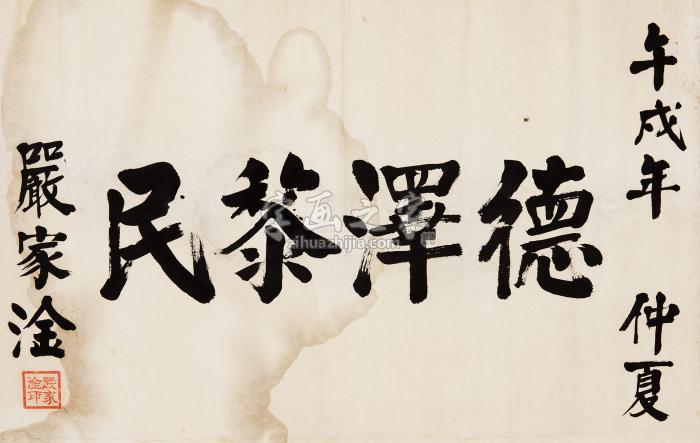 午戌年 仲夏
德澤黎民
嚴家淦
嚴家淦印
字画之家
zihuazhijia.com